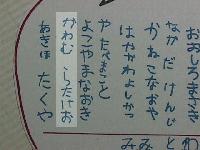 おおしろまさき
ながだ けんじ
かねこなおや
はやかわよしかつ
やたべまこと
よこやまなおき
かわむ らたけお
あきほ たくや